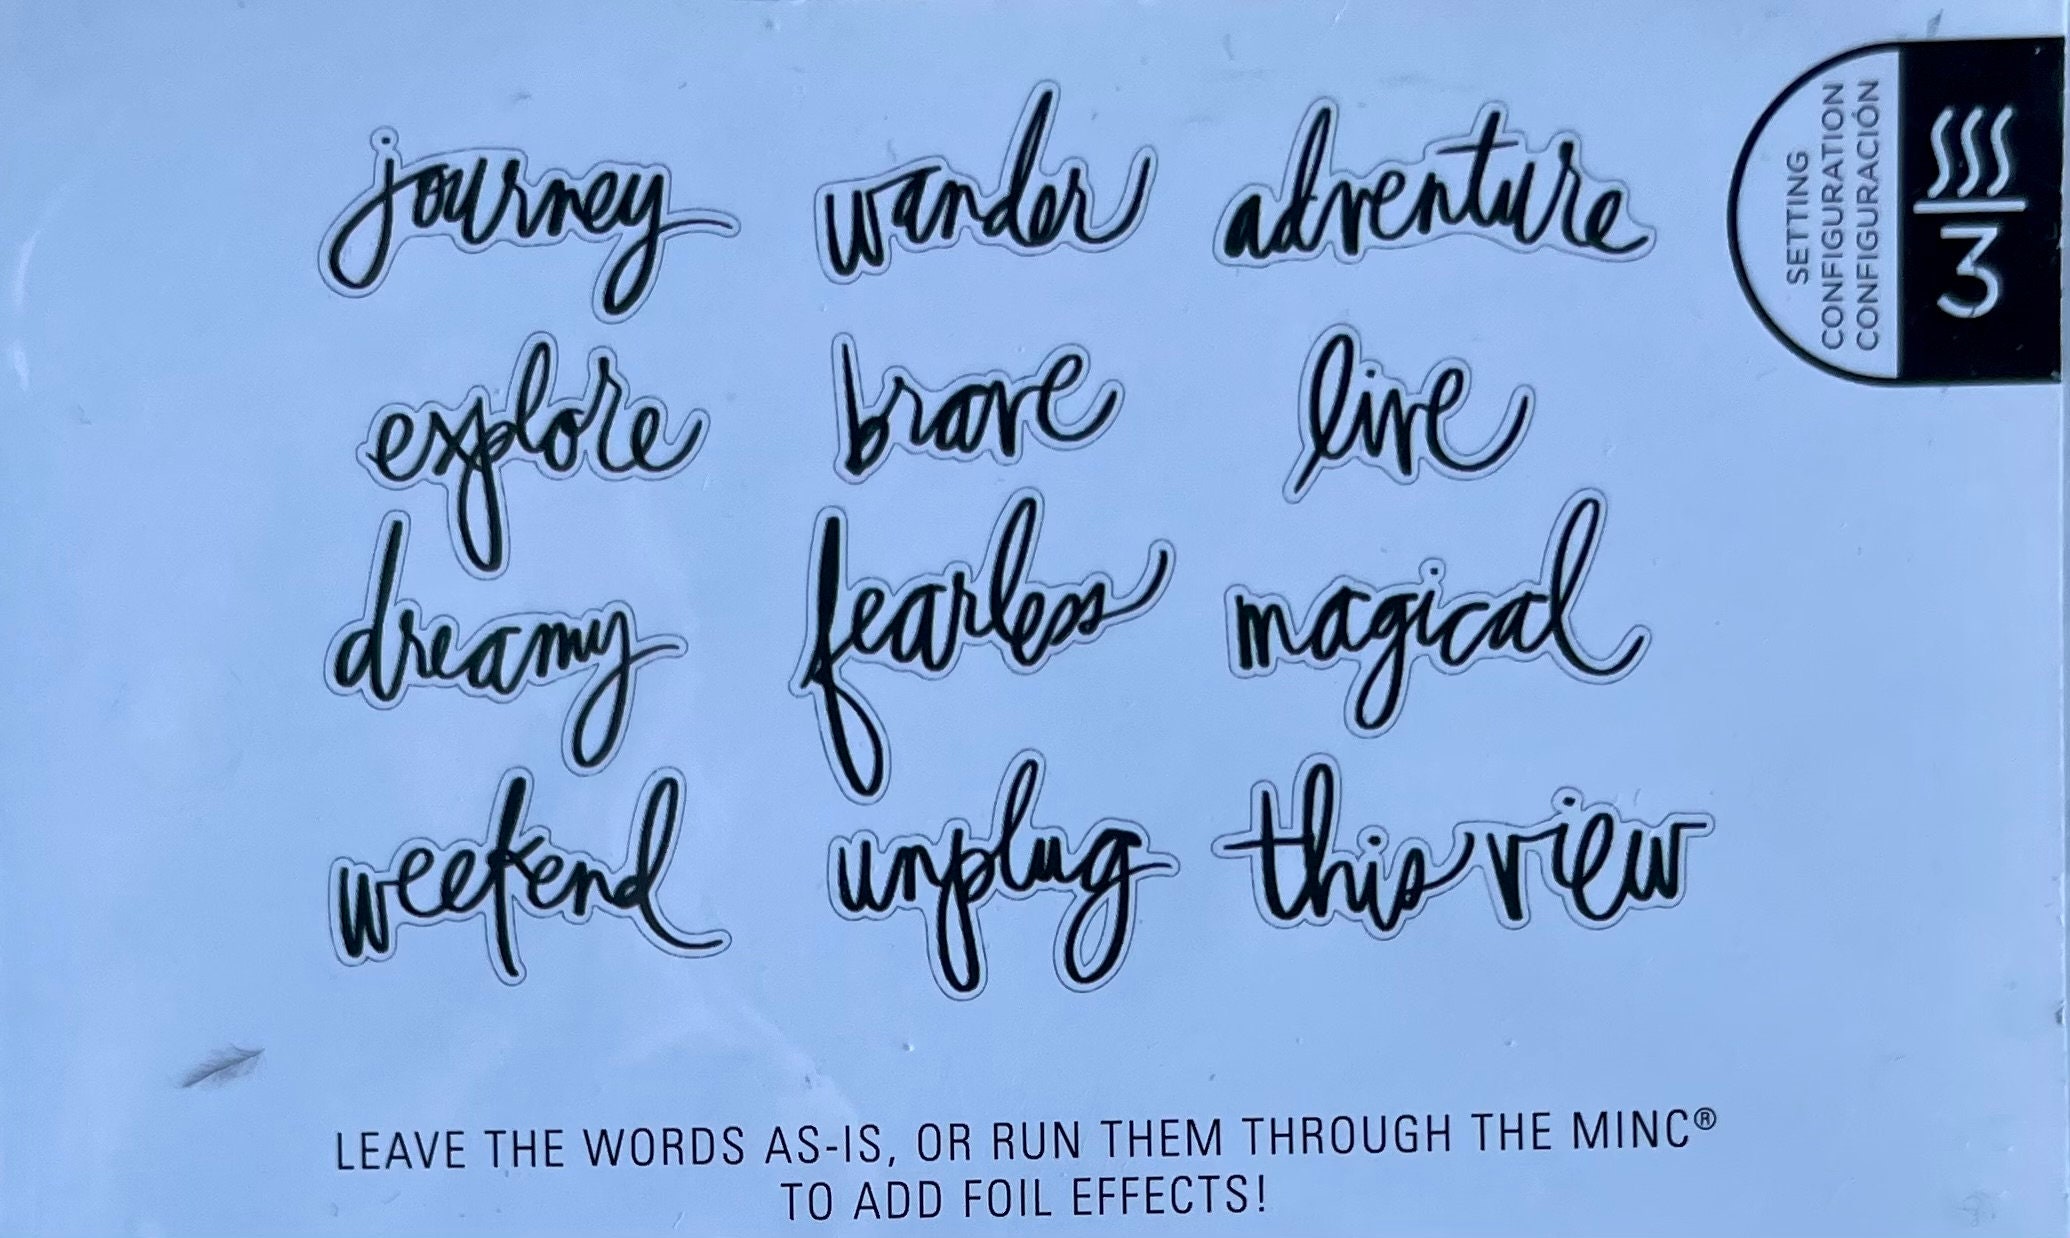 journey wander adventure
explore brave live
dreamy fearless magical
weekend unplug this view
SETTING
CONFIGURATION
CONFIGURACIÓN
3
LEAVE THE WORDS AS-IS, OR RUN THEM THROUGH THE MINC®
TO ADD FOIL EFFECTS!